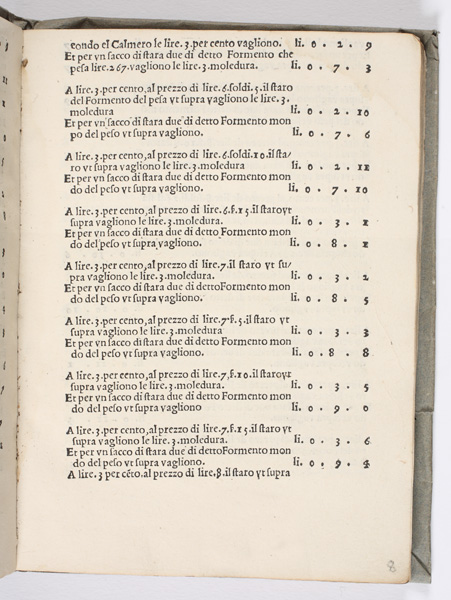 condo el Calmero le lire.3.per cento vagliono. li. 0 . 2 . 9
Et per vn sacco di stara due di detto Formento che
pesa lire.267.vagliono le lire.3.moledura. li. 0 . 7 . 3
A lire.3.per cento,al prezzo di lire.6.soldi.5.il staro
del Formento del pesa vt supra vagliono le lire.3.
moledura li. 0 . 2 . 10
Et per vn sacco di stara due di detto Formento mon
po del peso vt supra vagliono. li. 0 . 7 . 6
A lire.3.per cento,al prezzo di lire.6.soldi.10.il sta/
ro vt supra vagliono le lire.3.moledura li. 0 . 2 . 11
Et per vn sacco di stara due di detto Formento mon
do del peso vt supra vagliono. li. 0 . 7 . 10
A lire.3.per cento,al prezzo di lire.6.ſ.15.il staro vt
supra vagliono le lire.3.moledura. li. 0 . 3 . 1
Et per vn sacco di stara due di detto Formento mon
do del peso vt supra vagliono. li. 0 . 8 . 1
A lire.3.per cento,al prezzo di lire.7.il staro vt su/
pra vagliono le lire.3.moledura. li. 0 . 3 . 2
Et per vn sacco di stara due di detto Formento mon
do del peso vt supra vagliono. li. 0 . 8 . 5
A lire.3.per cento,al prezzo di lire.7.ſ.5.il staro vt
supra vagliono le lire.3.moledura li. 0 . 3 . 3
Et per vn sacco di stara due di detto Formento mon
do del peso vt supra vagliono. li. 0 . 8 . 8
A lire.3.per cento,al prezzo di lire.7.ſ.10.il staro vt
supra vagliono le lire.3.moledura. li. 0 . 3 . 5
Et per vn sacco di stara due di detto Formento mon
do del peso vt supra vagliono li. 0 . 9 . 0
A lire.3.per cento,al prezzo di lire.7.ſ.15.il staro vt
supra vagliono le lire.3.moledura. li. 0 . 3 . 6
Et per vn sacco di stara due di detto Formento mon
do del peso vt supra vagliono. li. 0 . 9 .
A lire.3 per cẽto.al prezzo di lire.8.il staro vt supra
8